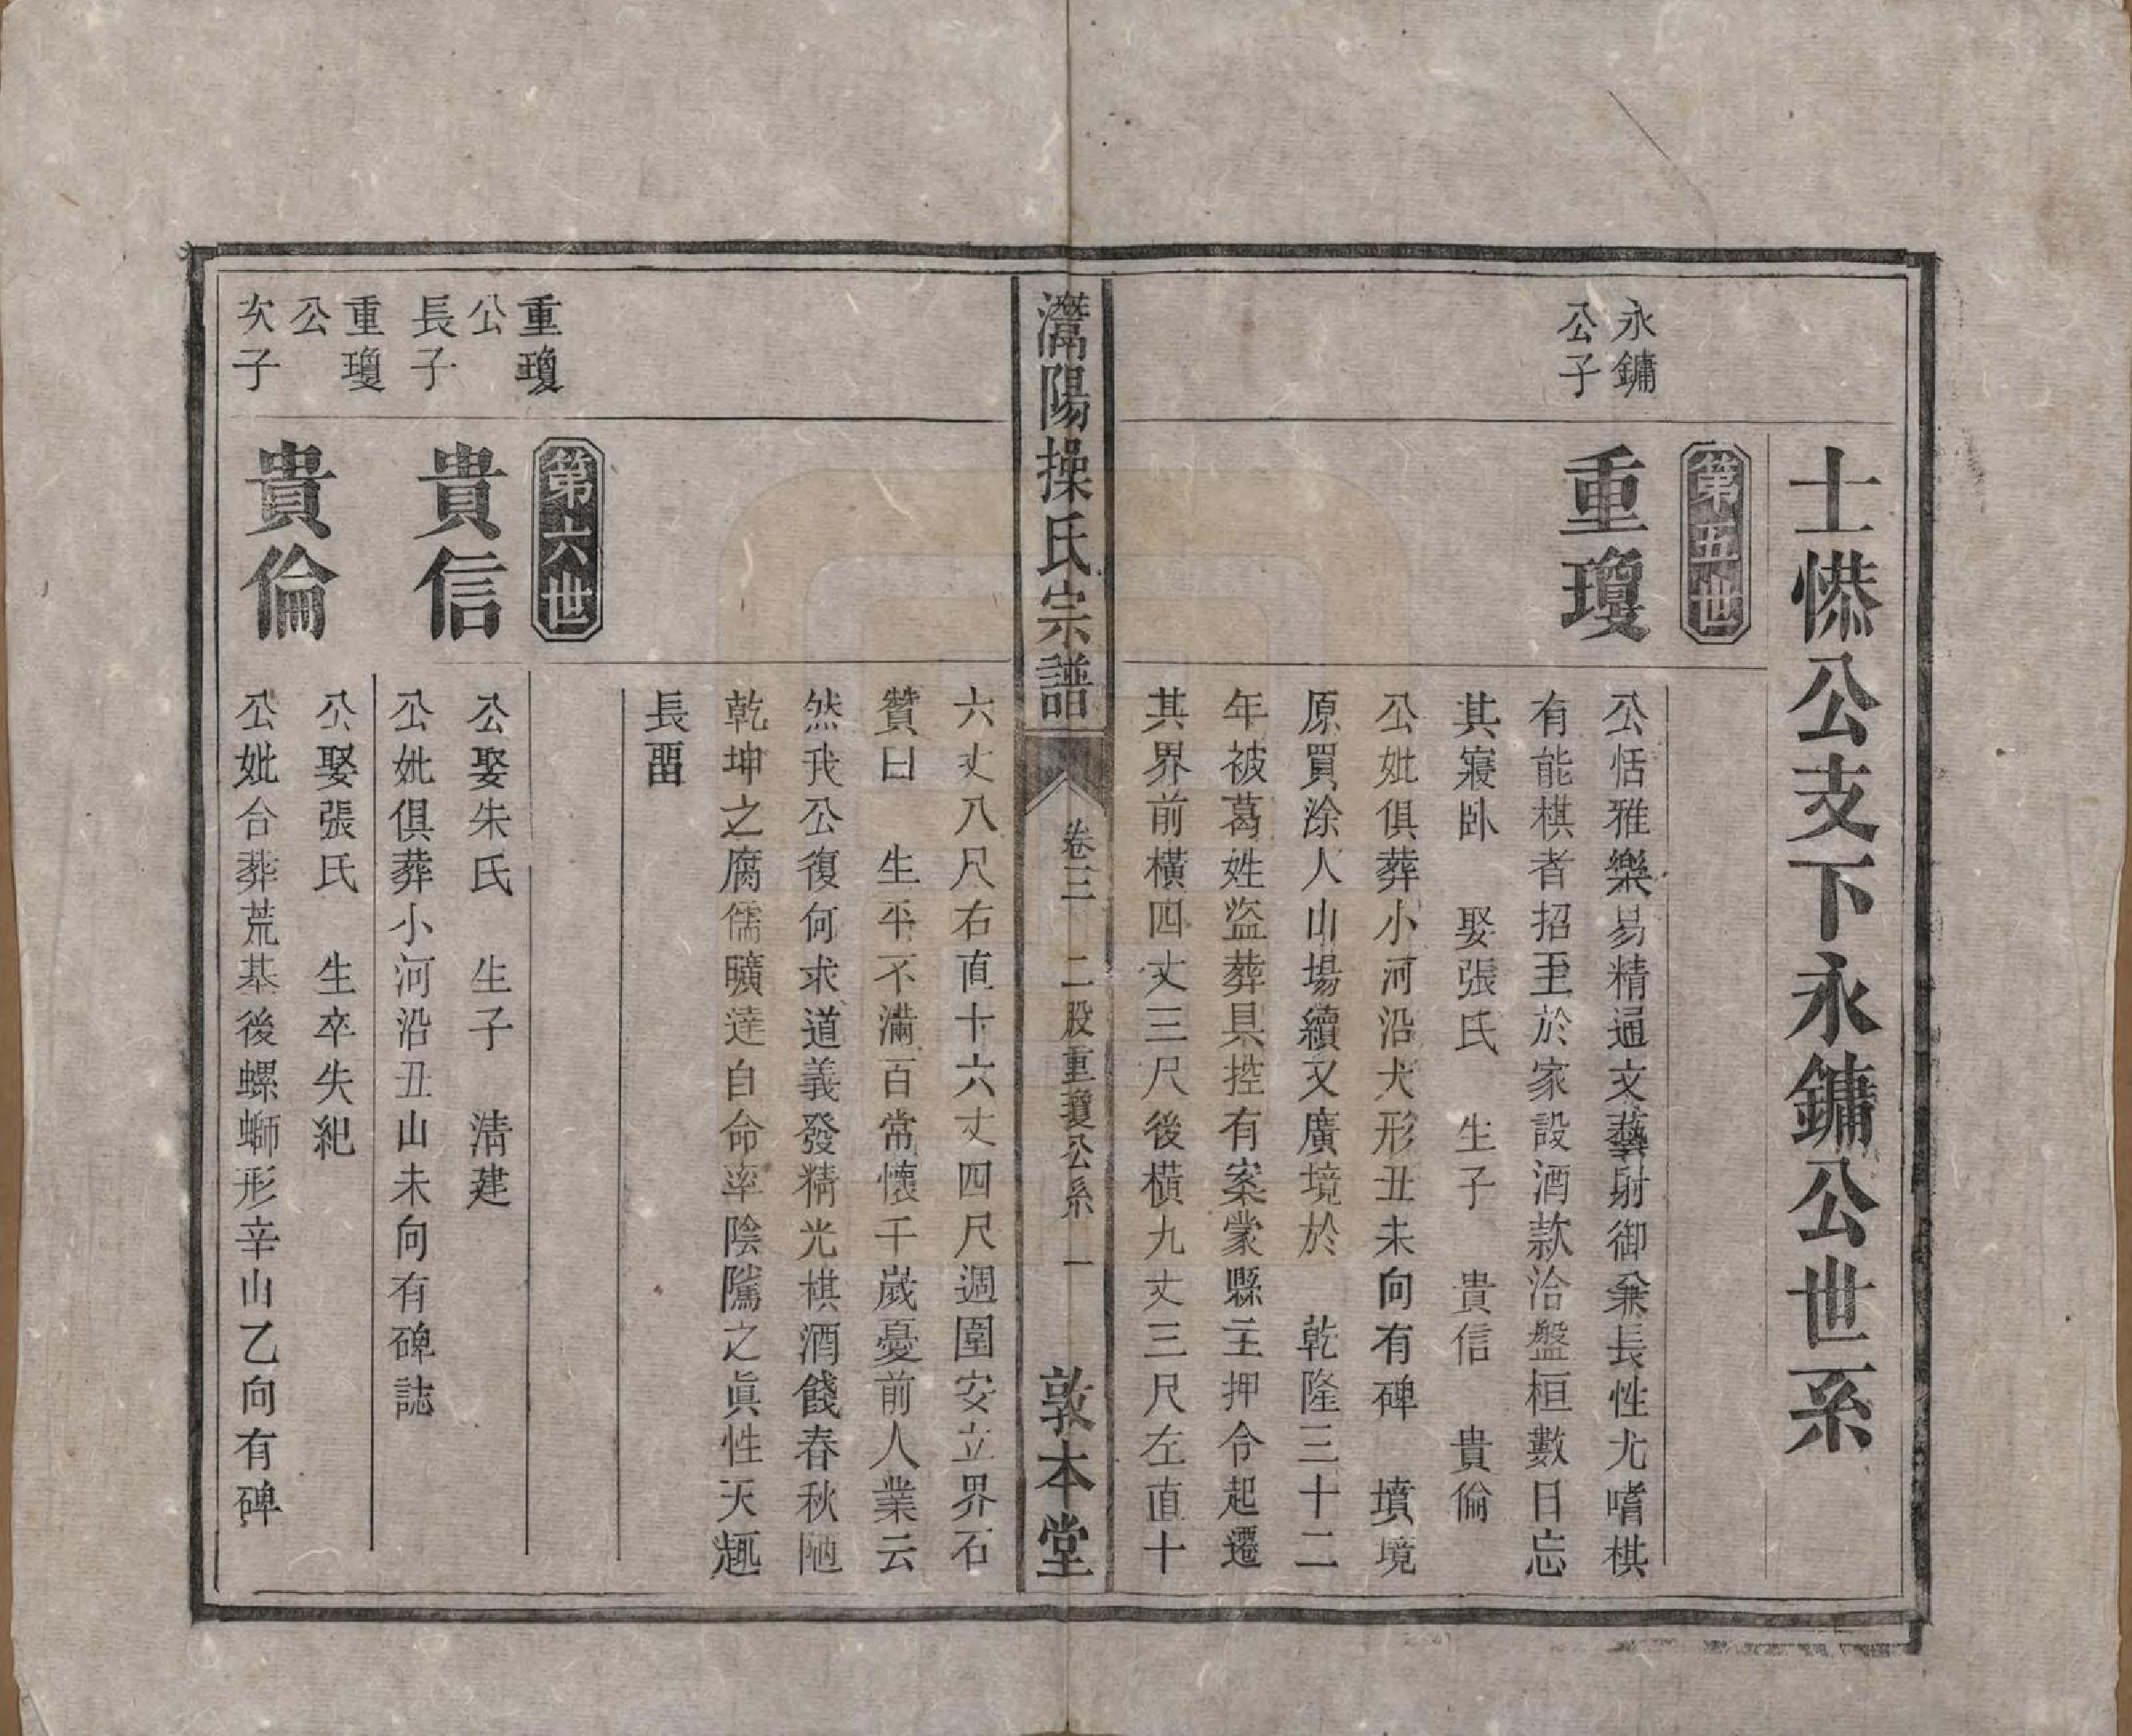 士㥬公支下永鏞公世系
第五世
永鏞
公子
重瓊
公恬雅樂易精通文藝射御兼長性尤嗜棋
有能棋者招至於家設酒款洽盤桓數日忘
其寢臥　娶張氏　生子　貴信　貴倫
公妣俱葬小河沿犬形丑未向有碑　墳境
原買涂人山場續又廣境於　乾隆三十二
年被葛姓盜葬具控有案蒙縣主押令起遷
其界前橫四丈三尺後橫九丈三尺左直十
灊陽操氏宗譜
卷三　二股重瓊公系　一
敦本堂
六丈八尺右直十六丈四尺週圍安立界石
贊曰　生平不滿百常懷千嵗憂前人業云
然我公復何求道義發精光棋酒餞春秋陋
乾坤之腐儒曠達自命率陰隲之眞性天趣
長畱
第六世
重瓊
公
長子
貴信
公娶朱氏　生子　清建
公妣俱葬小河沿丑山未向有碑誌
重瓊
公
次子
貴倫
公娶張氏　生卒失紀
公妣合葬荒基後螺螄形辛山乙向有碑